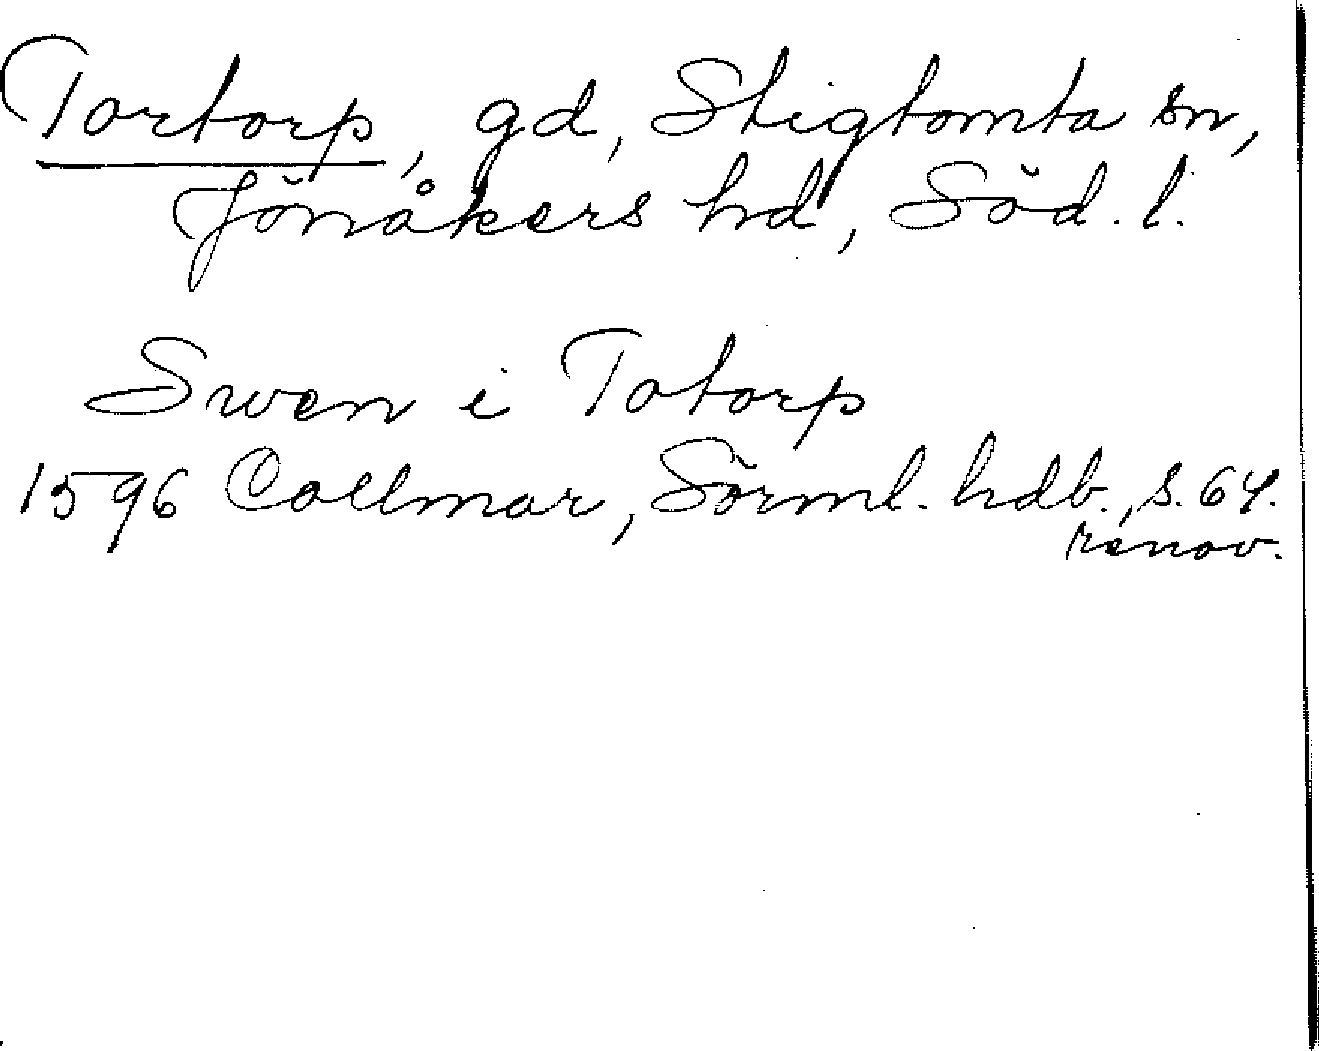 Tortorp, gd, Stigtomta sn,
Jönåkers hd, Söd. l.
Swen i Totorp
1596 Collmar, Sörml. hdb., s. 64.
renov.